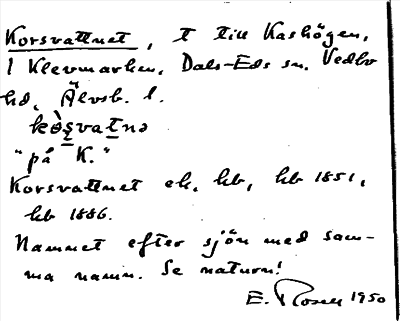 Korsvattnet, T till Kashögen,
i Klevmarken, Dals-Eds sn. Vedbo
hd, Älvsb. l.
kòșvatnə
"på K."
Korsvattnet ek. kb, kb 1851,
kb 1886.
Namnet efter sjön med sam-
ma namn. Se naturn!
E. Rosell 1950